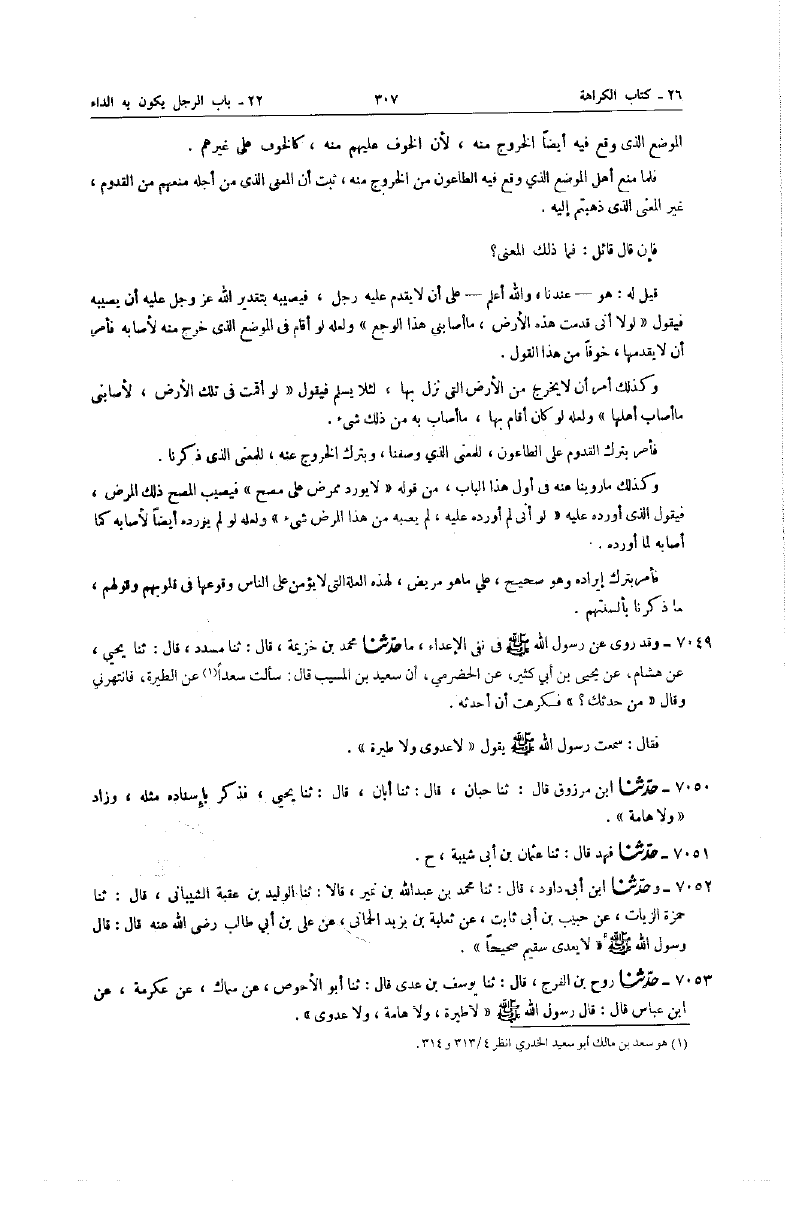 ٢٦ ـ كتاب الكراهة ٣٠٧ ٢٢ ـ باب الرجل يكون به الداء
الموضع الذى وقع فيه أيضاً الخروج منه ، لأن الخوف عليهم منه ، كالخوف على غيرهم .
فلما منع أهل الموضع الذي وقع فيه الطاعون من الخروج منه ، ثبت أن المعنى الذى من أجله منعهم من القدوم ،
غير المعنى الذى ذهبتم إليه .
فإن قال قائل : فما ذلك المعنى؟
قيل له : هو — عندنا ، والله أعلم — على أن لايقدم عليه رجل ، فيصيبه بتقدير الله عز وجل عليه أن يصيبه
فيقول « لولا أنى قدمت هذه الأرض ، ماأصابني هذا الوجع » ولعله لو أقام فى الموضع الذى خرج منه لأصابه فأمر
أن لايقدمها ، خوفاً من هذا القول .
وكذلك أمر أن لايخرج من الأرض التى نزل بها ، لئلا يسلم فيقول « لو أقمت فى تلك الأرض ، لأصابنى
ماأصاب أهلها » ولعله لو كان أقام بها ، ماأصاب به من ذلك شىء .
فأمر بترك القدوم على الطاعون ، للمعنى الذي وصفنا ، وبترك الخروج عنه ، للمعنى الذى ذكرنا .
وكذلك ماروينا عنه فى أول هذا الباب ، من قوله « لايورد ممرض على مصح » فيصيب المصح ذلك المرض ،
فيقول الذى أورده عليه « لو أنى لم أورده عليه ، لم يصبه من هذا المرض شىء » ولعله لو لم يورده أيضاً لأصابه كما
أصابه لما أورده .
فأمر بترك إيراده وهو صحيح ، على ماهو مريض ، لهذه العلة التى لايؤمن على الناس وقوعها فى قلوبهم وقولهم ،
ما ذكرنا بألسنتهم .
٧٠٤٩ ـ وقد روى عن رسول الله ﷺ فى نفى الإعداء ، ما حدثنا محمد بن خزيمة ، قال : ثنا مسدد ، قال : ثنا يحيى ،
عن هشام، عن يحيى بن أبي كثير، عن الحضرمي، أن سعيد بن المسيب قال: سألت سعداً(١) عن الطيرة، فانتهرني
وقال « من حدثك ؟ » فكرهت أن أحدثه .
فقال : سمعت رسول الله ﷺ يقول « لاعدوى ولا طيرة » .
٧٠٥٠ ـ حدثنا ابن مرزوق قال : ثنا حبان ، قال : ثنا أبان ، قال : ثنا يحيى ، فذكر بإسناده مثله ، وزاد
« ولا هامة » .
٧٠٥١ ـ حدثنا فهد قال : ثنا عثمان بن أبى شيبة ، ح .
٧٠٥٢ ـ وحدثنا ابن أبى داود ، قال : ثنا محمد بن عبدالله بن نمير ، قالا : ثنا الوليد بن عقبة الشيبانى ، قال : ثنا
حمزة الزيات ، عن حبيب بن أبى ثابت ، عن ثعلبة بن يزيد الحمانى ، عن على بن أبي طالب رضى الله عنه قال : قال
رسول الله ﷺ « لايعدى سقيم صحيحاً » .
٧٠٥٣ ـ حدثنا روح بن الفرج ، قال : ثنا يوسف بن عدى قال : ثنا أبو الأحوص ، عن سماك ، عن عكرمة ، عن
ابن عباس قال : قال رسول الله ﷺ « لاطيرة ، ولا هامة ، ولا عدوى » .
(١) هو سعد بن مالك أبو سعيد الخدري انظر ٣١٣/٤ و ٣١٤.